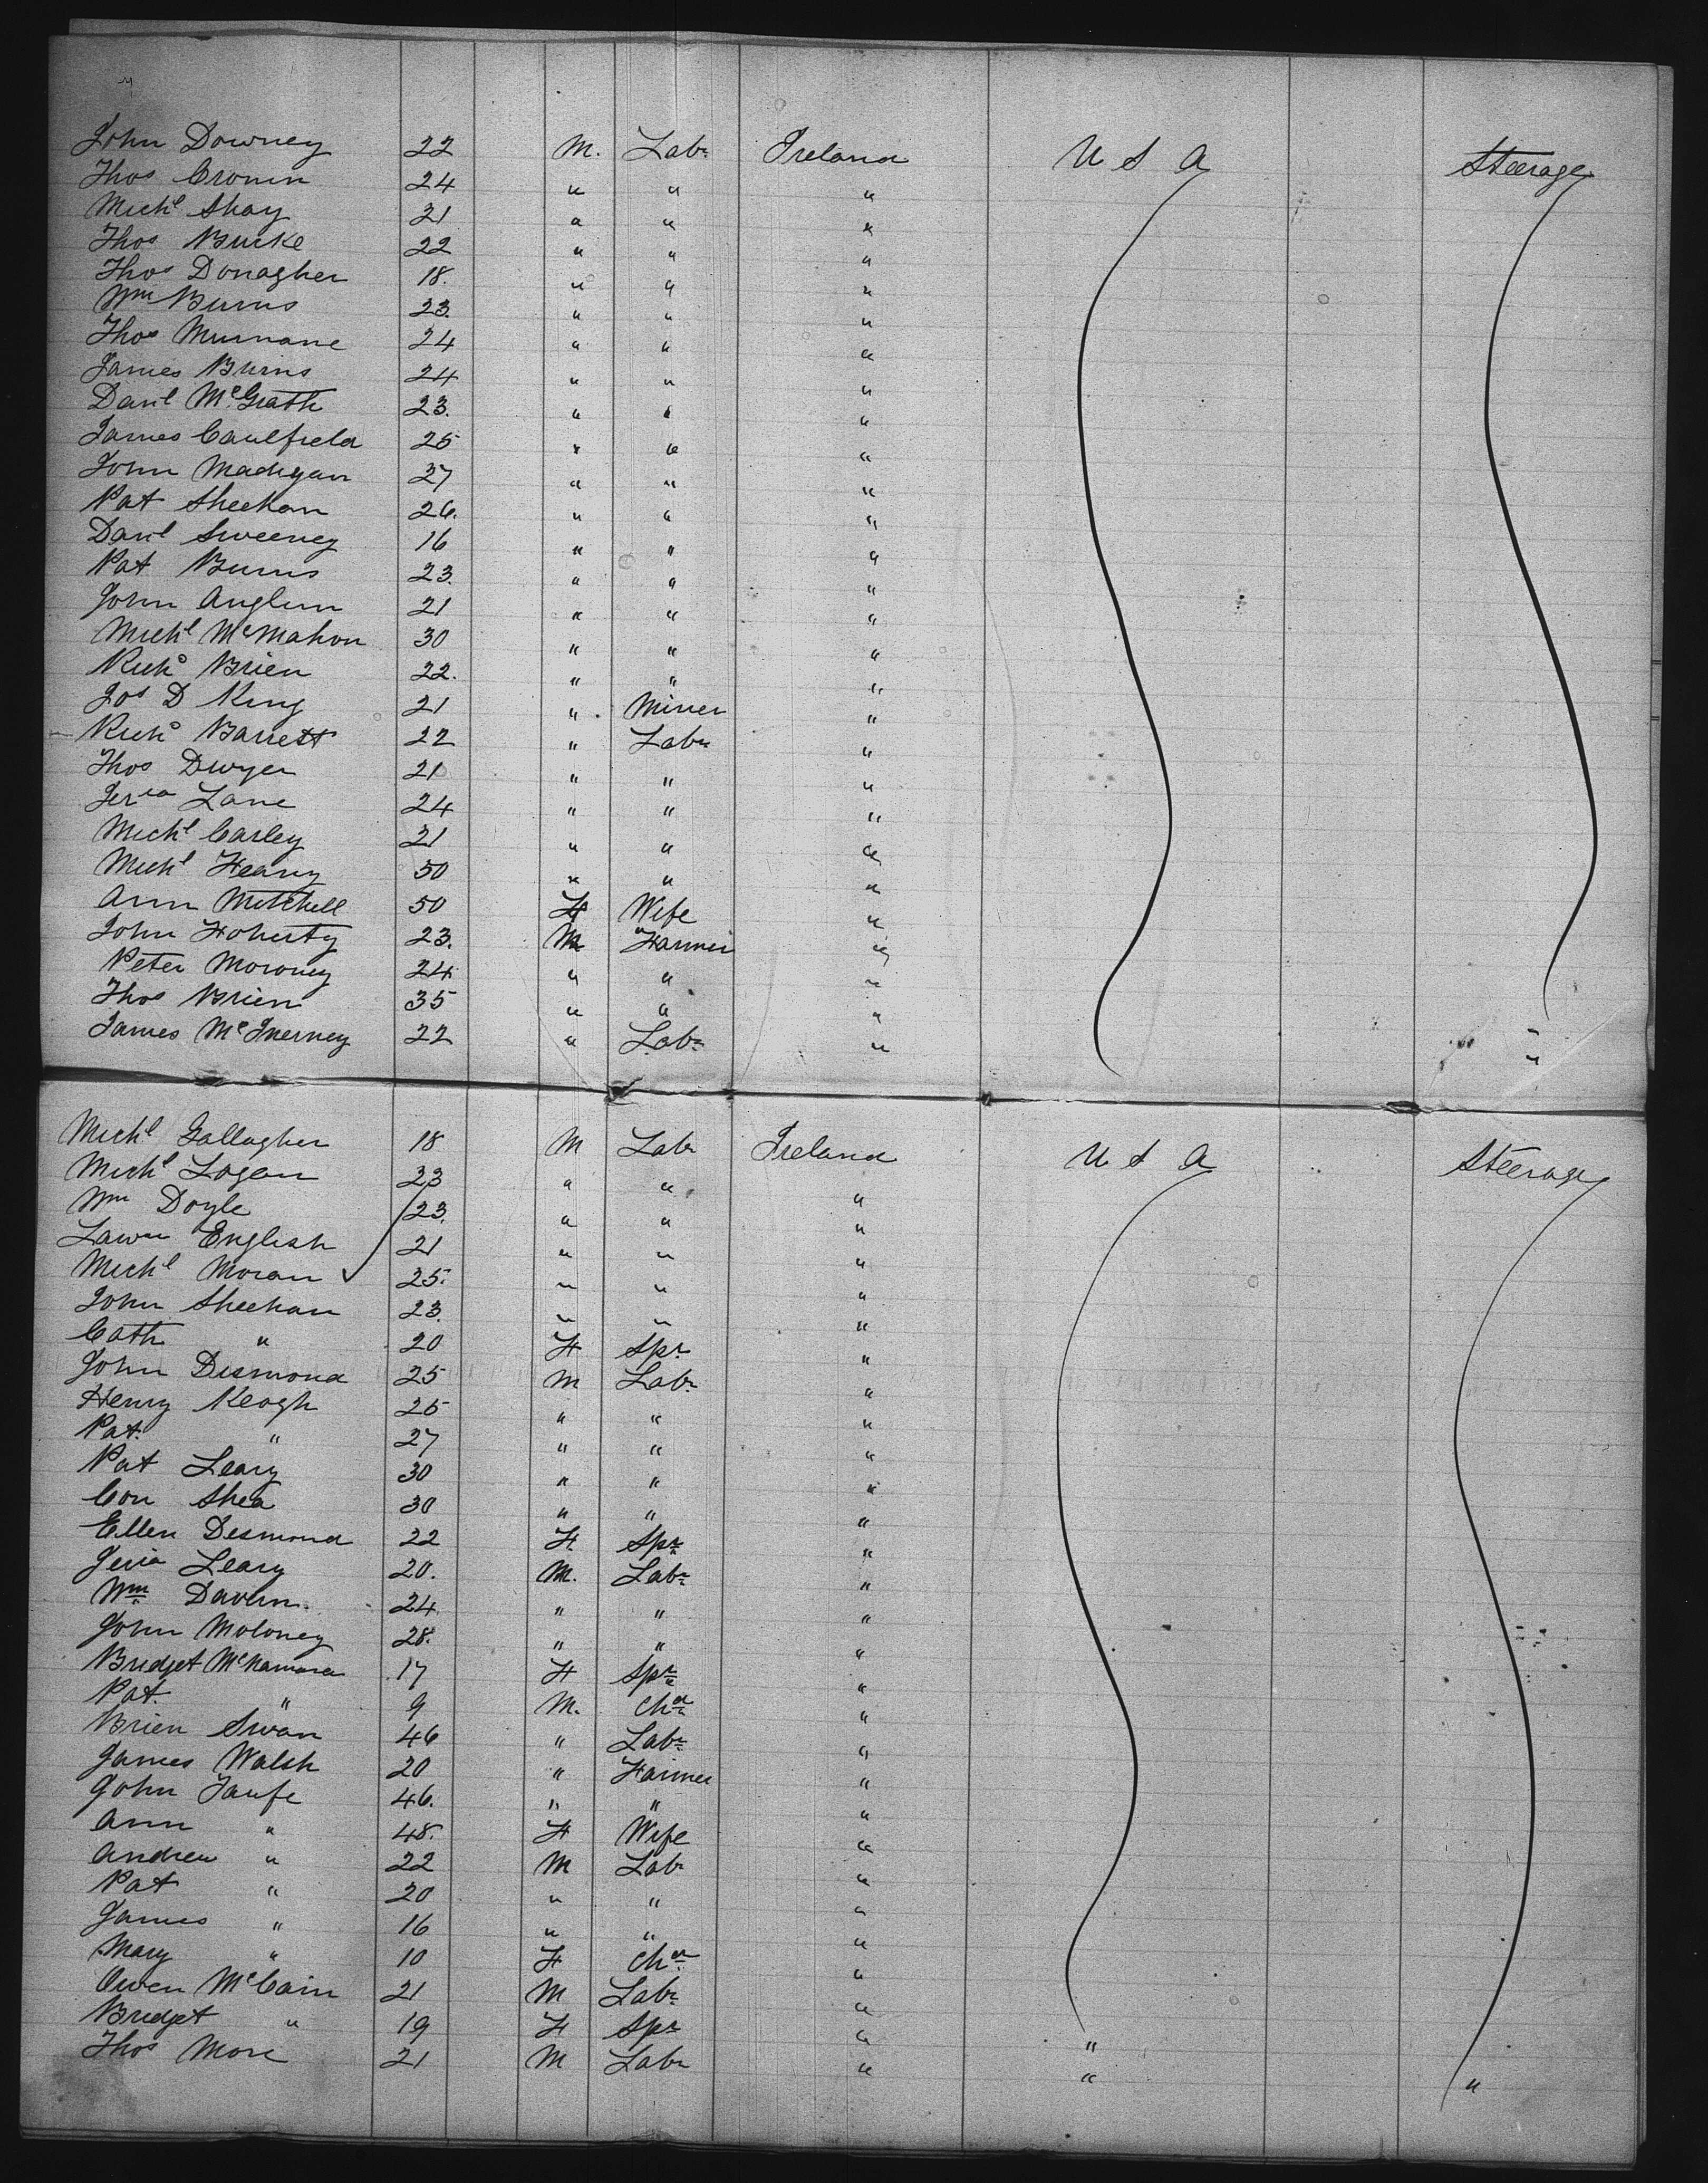 John Downey 22 M. Labr Ireland U S A Steerage
Thos Cronin 24 " " "
Michl Shay 21 " " "
Thos Burke 22 " " "
Thos Donagher 18. " " "
Wm Burns 23. " " "
Thos Murnane 24 " " "
James Burns 24 " " "
Danl McGrath 23. " " "
James Caulfield 25 " " "
John Madigan 27 " " "
Pat Sheehan 26. " " "
Danl Sweeney 16 " " "
Pat Burns 23. " " "
John Anglim 21 " " "
Michl McMahon 30 " " "
Richd Brien 22. " " "
Jos D King 21 " Miner "
Richd Barrett 22 " Labr "
Thos Dwyer 21 " " "
Jeria Lane 24 " " "
Michl Carley 21 " " "
Michl Heany 50 " " "
Ann Mitchell 50 F Wife "
John Foherty 23. M Farmer "
Peter Moroney 24 " " "
Thos Brien 35 " " "
James McInerney 22 " Labr " "
Michl Gallagher 18 M Labr Ireland U S A Steerage
Michl Logan 23 " " "
Wm Doyle 23. " " "
Lawce English 21 " " "
Michl Moran 25. " " "
John Sheehan 23. " " "
Cath " 20 F Spr "
John Desmond 25 M Labr "
Henry Keogh 25 " " "
Pat. " 27 " " "
Pat Leary 30 " " "
Con Shea 30 " " "
Ellen Desmond 22 F Spr "
Jeria Leary 20. M. Labr "
Wm Davern. 24. " " "
John Moloney 28. " " "
Bridget McNamara 17 F Spr "
Pat. " 9 M. Chd "
Brien Swan 46 " Labr "
James Walsh 20 " Farmer "
John Taufe 46. " " "
Ann " 48. F Wife "
Andrew " 22 M Labr "
Pat " 20 " " "
James " 16 " " "
Mary " 10 F Chd "
Owen McCain 21 M Labr "
Bridget " 19 F Spr " "
Thos More 21 M Labr " " "